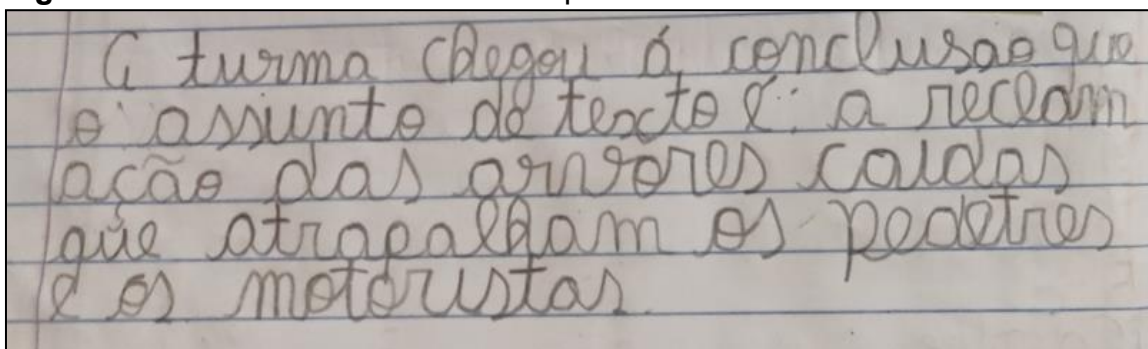 A turma chegou á conclusao que
o assunto do texto é: a reclam
ação das arvores caidas
que atrapalham os pedetres
e os motoristas.